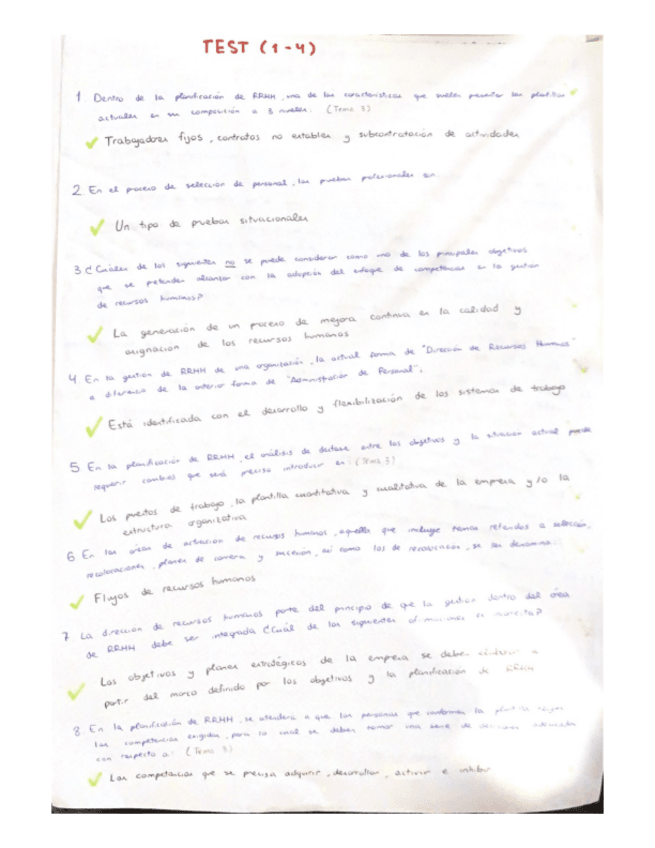 TEST (1-4)
1. Dentro de la planificación de RRHH, una de las características que suelen presentar las plantillas
actuales es su composición a 3 niveles. (Tema 3)
✓ Trabajadores fijos, contratos no estables y subcontratación de actividades
2. En el proceso de selección de personal, las pruebas profesionales son
✓ Un tipo de pruebas situacionales
3. ¿Cuáles de los siguientes no se puede considerar como uno de los principales objetivos
que se pretenden alcanzar con la adopción del enfoque de competencias en la gestión
de recursos humanos?
✓ La generación de un proceso de mejora continua en la calidad y
asignación de los recursos humanos
4. En la gestión de RRHH de una organización, la actual forma de "Dirección de Recursos Humanos"
a diferencia de la anterior forma de "Administración de Personal":
✓ Está identificada con el desarrollo y flexibilización de los sistemas de trabajo
5. En la planificación de RRHH, el análisis de desfase entre los objetivos y la situación actual puede
requerir cambios que será preciso introducir en: (Tema 3)
✓ Los puestos de trabajo, la plantilla cuantitativa y cualitativa de la empresa y/o la
estructura organizativa
6. En las áreas de actuación de recursos humanos, aquella que incluye temas referidos a selección,
recolocaciones, planes de carrera y sucesión, así como los de se denomina...
✓ Flujos de recursos humanos
7. La dirección de recursos humanos parte del principio de que la gestión dentro del área
de RRHH debe ser integrada ¿Cuál de las siguientes afirmaciones es incorrecta?
✓ Los objetivos y planes estratégicos de la empresa se deben a
partir del marco definido por los objetivos y la planificación de RRHH
8. En la planificación de RRHH, se atenderá a que las personas que conforman la plantilla
las competencias exigidas, para lo cual se deben tomar una serie de decisiones
con respecto a: (Tema 3)
✓ Las competencias que se precisa adquirir, desarrollar, activar e inhibir